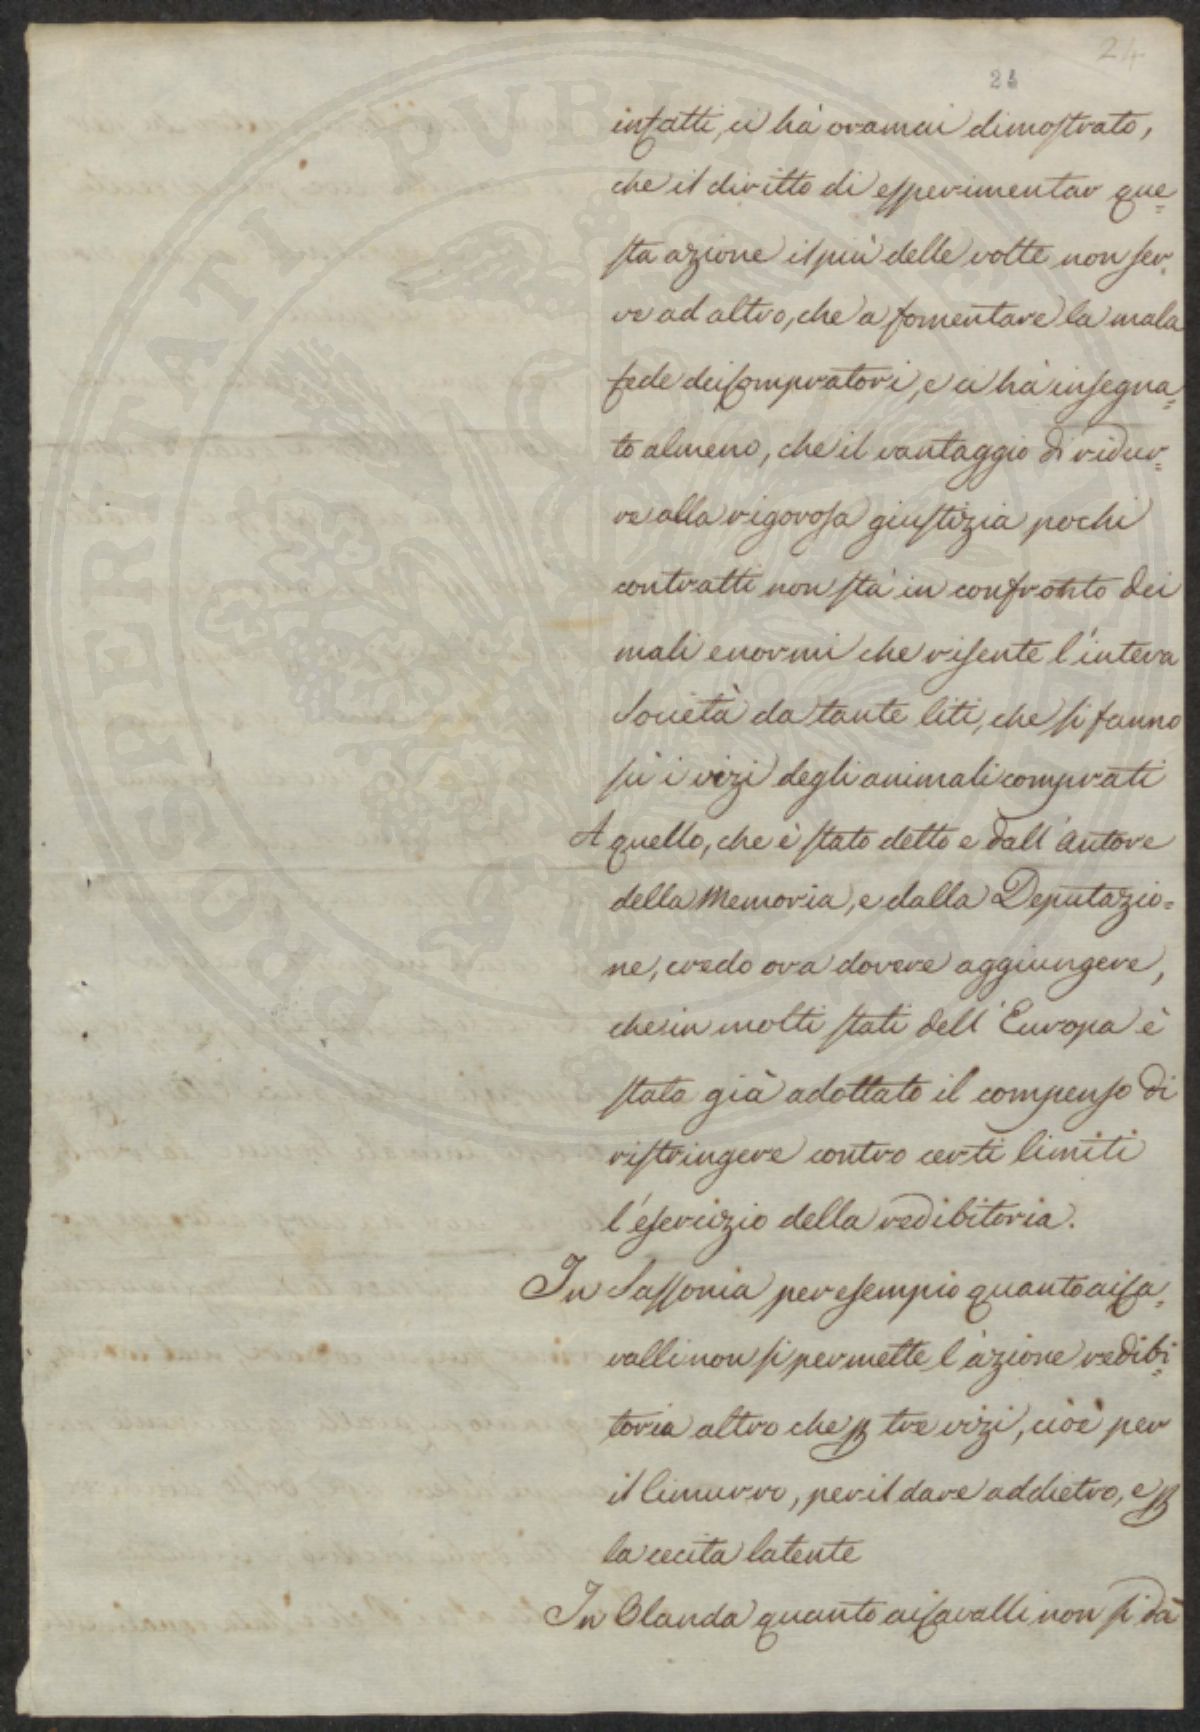 24
24
infatti, ci hà oramai dimostrato,
che il diritto di esperimentar que=
sta azione il più delle volte non ser=
ve ad altro, che a fomentare la mala
fede dei Compratori, e ci hà insegna=
to almeno, che il vantaggio di ridur=
re alla rigorosa giustizia pochi
contratti non stà in confronto dei
mali enormi che risente l'intera
Società da tante liti, che si fanno
sù i vizi degli animali comprati
A quello, che è stato detto e dall'Autore
della Memoria, e dalla Deputazio=
ne, credo ora dovere aggiungere,
che in molti stati dell'Europa è
stato già adottato il compenso di
ristringere contro certi limiti
l'esercizio della redibitoria.
In Sassonia per esempio quanto ai Ca=
valli non si permette l'azione redibi=
toria altro che ꝑ tre vizi, cioè per
il Cimurro, per il dare addietro, e ꝑ
la cecita latente
In Olanda quanto ai Cavalli non si dà
PROSPERITATI PVBLICAE